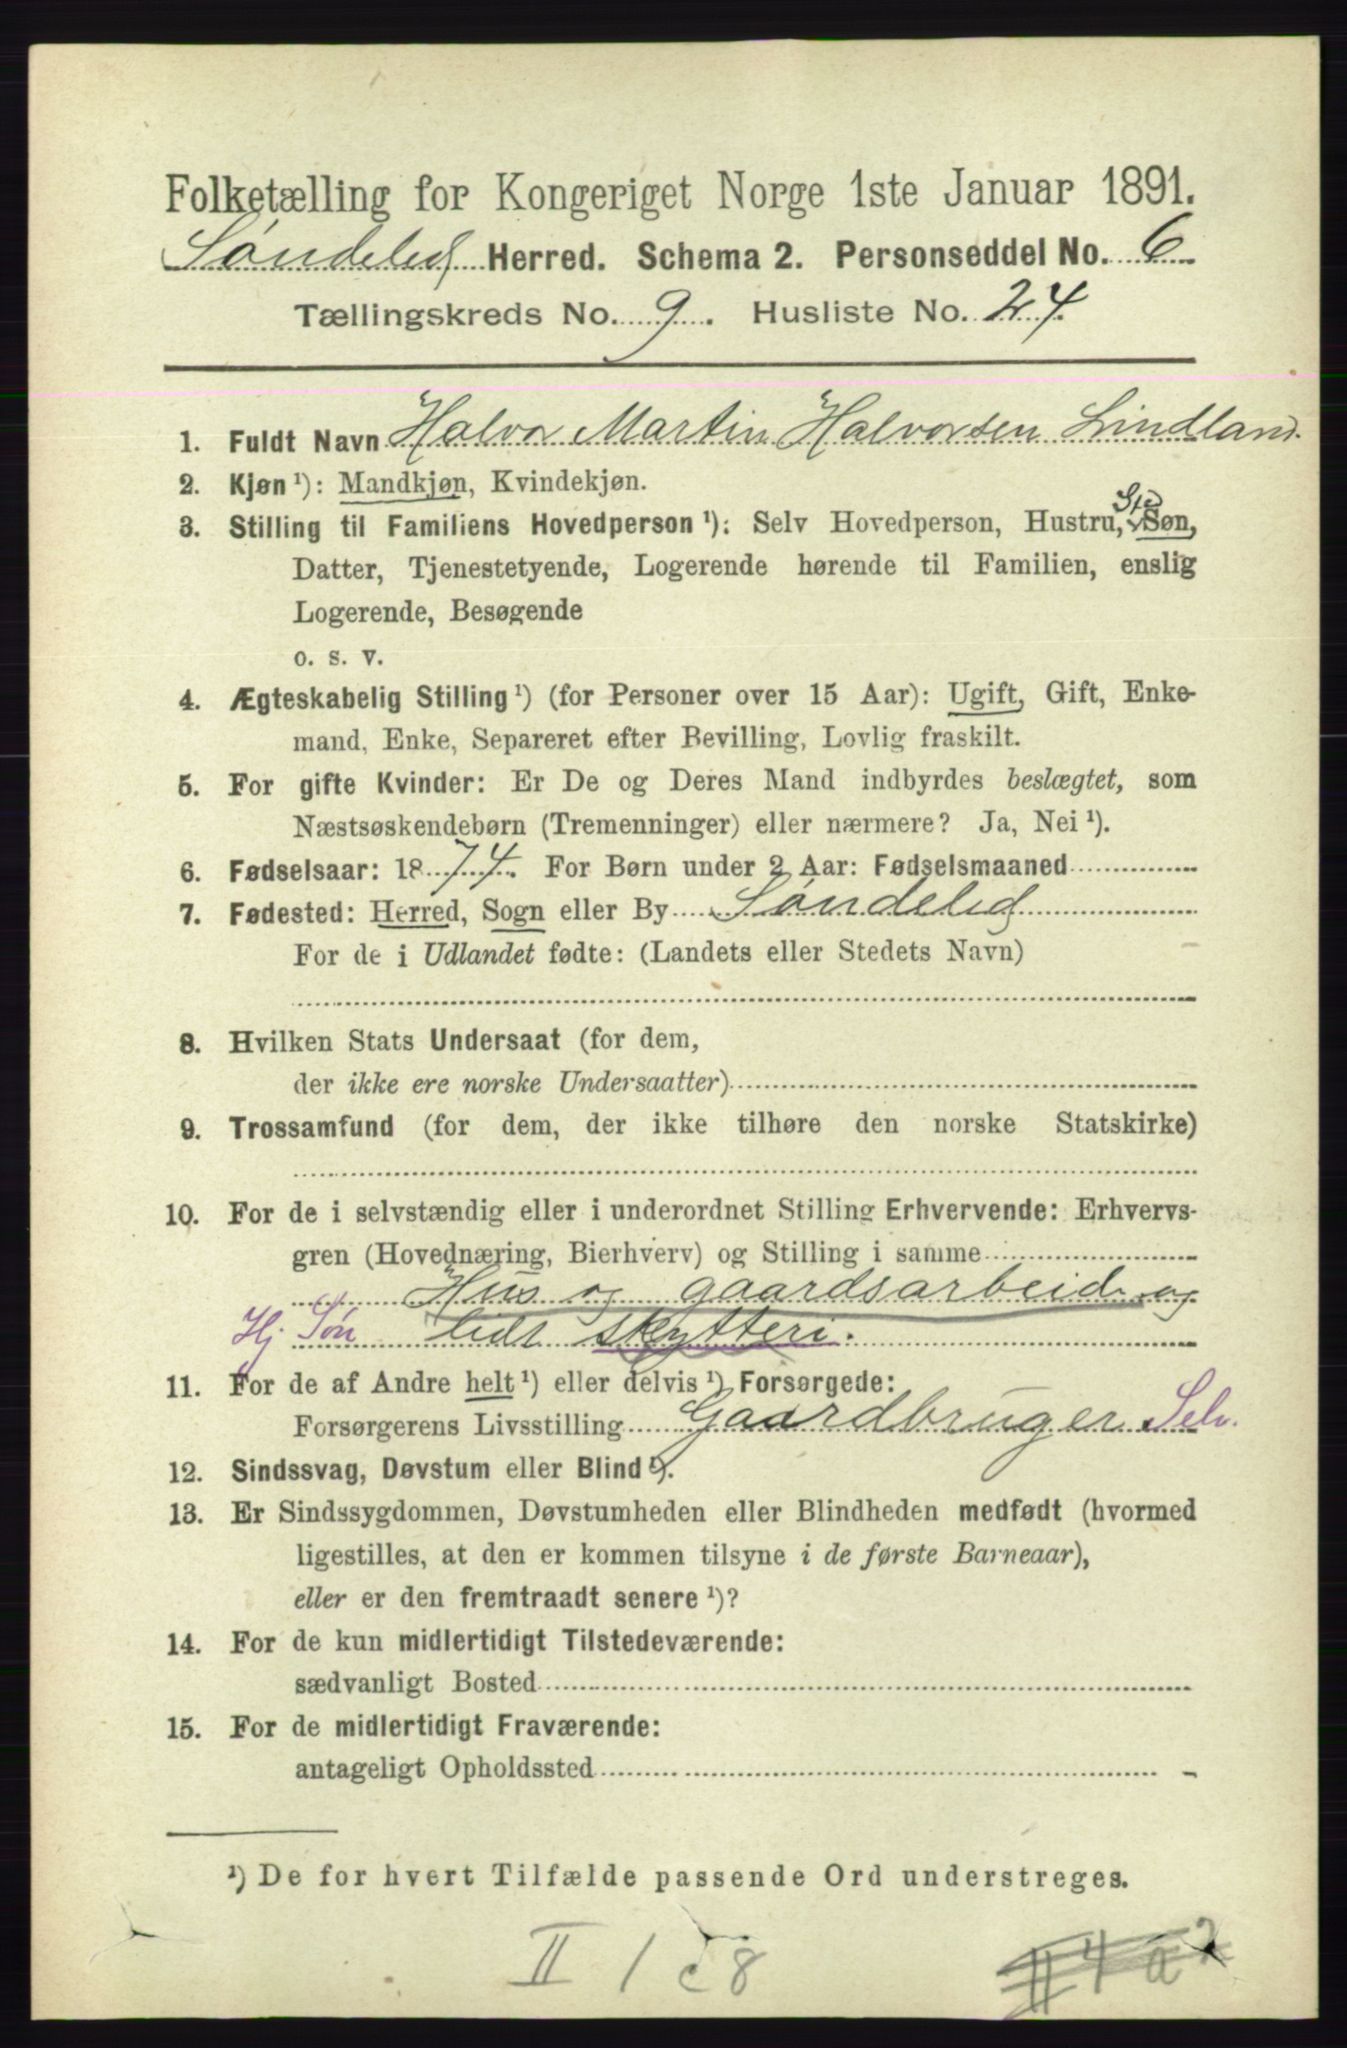 Folketælling for Kongeriget Norge 1ste Januar 1891.
Søndeled Herred. Schema 2. Personseddel No. 6
Tællingskreds No. 9. Husliste No. 24.
1. Fuldt Navn Halvor Martin Halvorsen Lindland.
2. Kjøn ¹): Mandkjøn, Kvindekjøn.
Sted
3. Stilling til Familiens Hovedperson ¹): Selv Hovedperson, Hustru, Søn,
Datter, Tjenestetyende, Logerende hørende til Familien, enslig
Logerende, Besøgende
o. s. v.
4. Ægteskabelig Stilling ¹) (for Personer over 15 Aar): Ugift, Gift, Enke-
mand, Enke, Separeret efter Bevilling, Lovlig fraskilt.
5. For gifte Kvinder: Er De og Deres Mand indbyrdes beslægtet, som
Næstsøskendebørn (Tremenninger) eller nærmere? Ja, Nei ¹).
6. Fødselsaar: 1874. For Børn under 2 Aar: Fødselsmaaned
7. Fødested: Herred, Sogn eller By Søndeled
For de i Udlandet fødte: (Landets eller Stedets Navn)
8. Hvilken Stats Undersaat (for dem,
der ikke ere norske Undersaatter)
9. Trossamfund (for dem, der ikke tilhøre den norske Statskirke)
10. For de i selvstændig eller i underordnet Stilling Erhvervende: Erhvervs-
gren (Hovednæring, Bierhverv) og Stilling i samme
Hus og gaardsarbeide og
Hj. Søn lidt skytteri.
11. For de af Andre helt ¹) eller delvis ¹) Forsørgede:
Forsørgerens Livsstilling Gaardbruger Selv.
12. Sindssvag, Døvstum eller Blind ¹).
13. Er Sindssygdommen, Døvstumheden eller Blindheden medfødt (hvormed
ligestilles, at den er kommen tilsyne i de første Barneaar),
eller er den fremtraadt senere ¹)?
14. For de kun midlertidigt Tilstedeværende:
sædvanligt Bosted
15. For de midlertidigt Fraværende:
antageligt Opholdssted
¹) De for hvert Tilfælde passende Ord understreges.
II 1 c 8
II 4 a 2